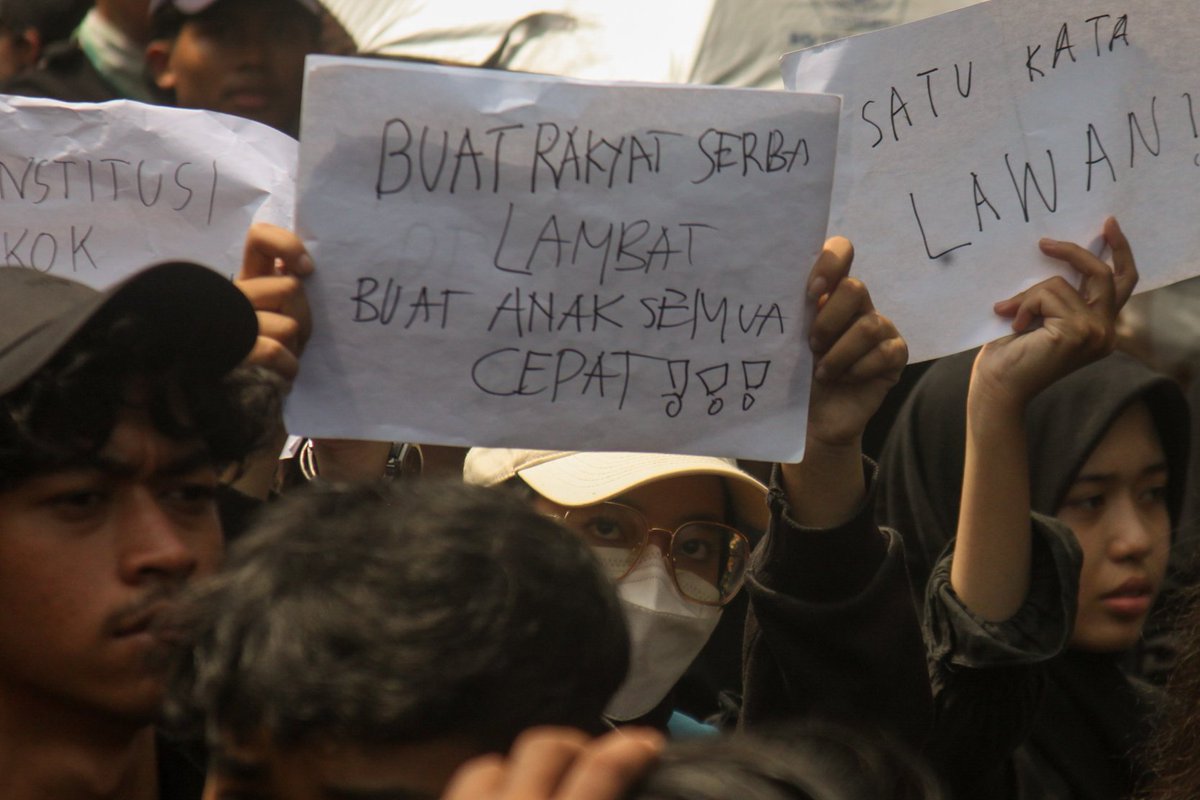 NSTITUSI
KOK
BUAT RAKYAT SERBA
LAMBAT
BUAT ANAK SEMUA
CEPAT!!!
SATU KATA
LAWAN!